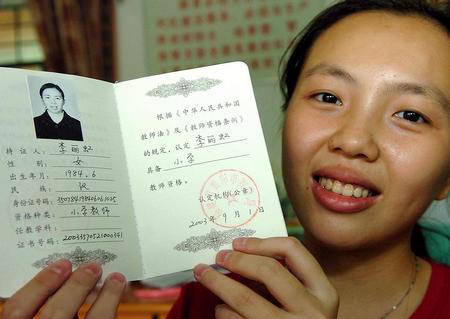 持 证 人：李丽虹
性 别：女
出生年月：1984.6
民 族：汉
身份证号码：
资格种类：小学教师
任教学科：
证书号码：
根据《中华人民共和国
教师法》及《教师资格条例》
的规定，认定 李丽虹
具备 小学
教师资格。
认定机构(公章)
2003年9月1日